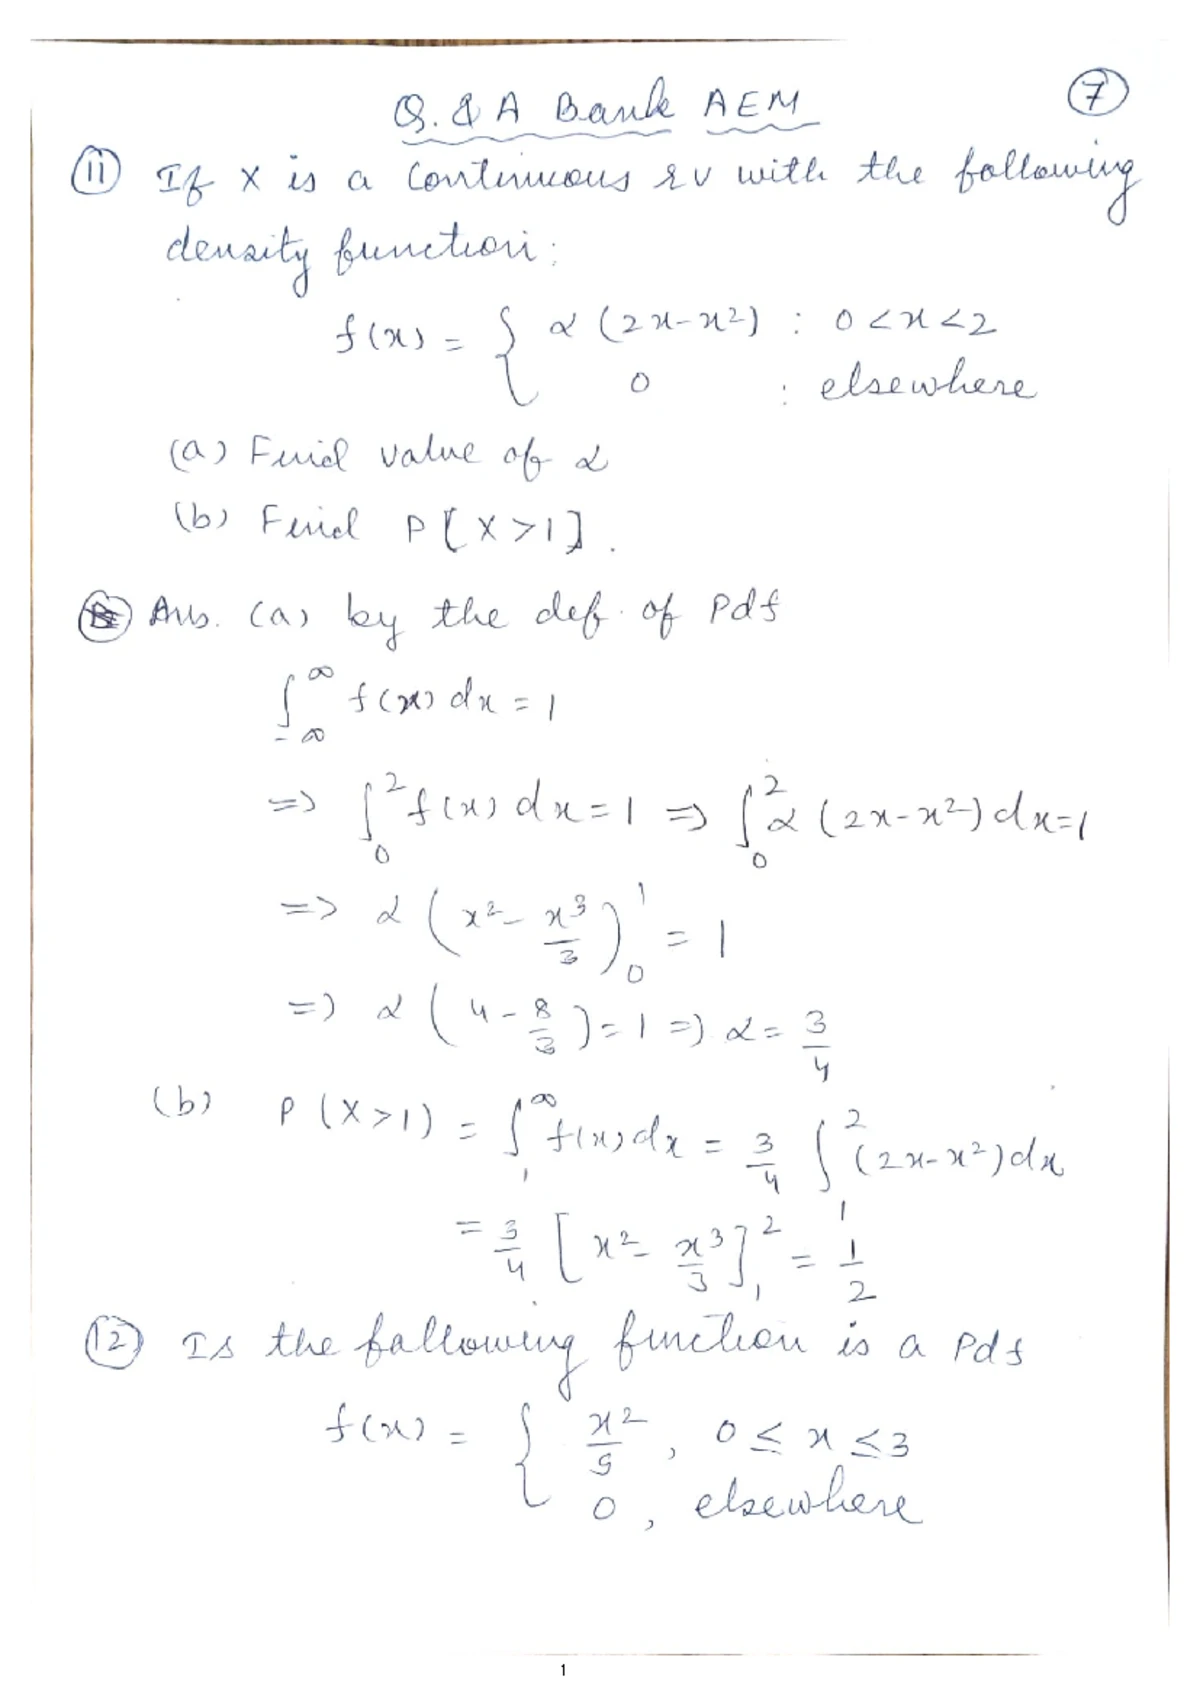 Q. & A Bank AEM
7
11 If X is a continuous rv with the following
density function:
f(x) = { α (2x-x²) : 0<x<2
0 : elsewhere
(a) Find value of α
(b) Find P[X>1].
Ans. (a) by the def. of Pdf
∫_{-∞}^{∞} f(x) dx = 1
=> ∫_0^2 f(x) dx = 1 => ∫_0^2 α (2x-x²) dx = 1
=> α (x² - x³/3)_0^1 = 1
=> α (4 - 8/3) = 1 => α = 3/4
(b) P(X>1) = ∫_1^∞ f(x) dx = 3/4 ∫_1^2 (2x-x²) dx
= 3/4 [x² - x³/3]_1^2 = 1/2
12 Is the following function is a Pdf
f(x) = { x²/9, 0 ≤ x ≤ 3
0, elsewhere
1